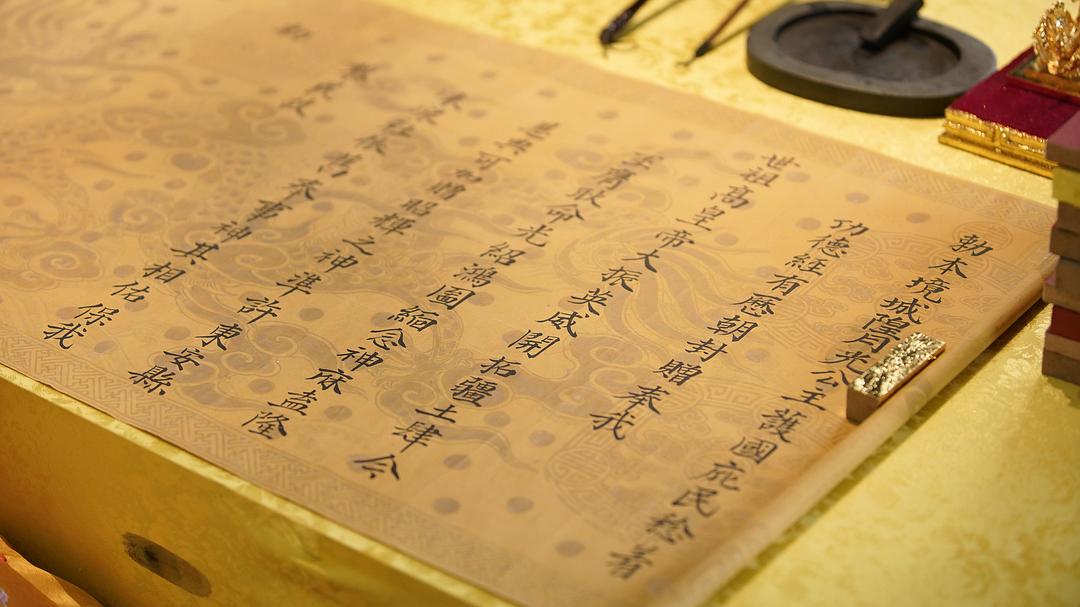 勅本境城隍光公主護國庇民稔著
功德經有歷朝封贈奉我
世祖高皇帝大振英威開拓疆土肆今
丕膺耿命光紹鴻圖緬念神庥盍隆
是典可加贈昭輝之神準許東安縣
依舊奉事神其相佑保我
黎民